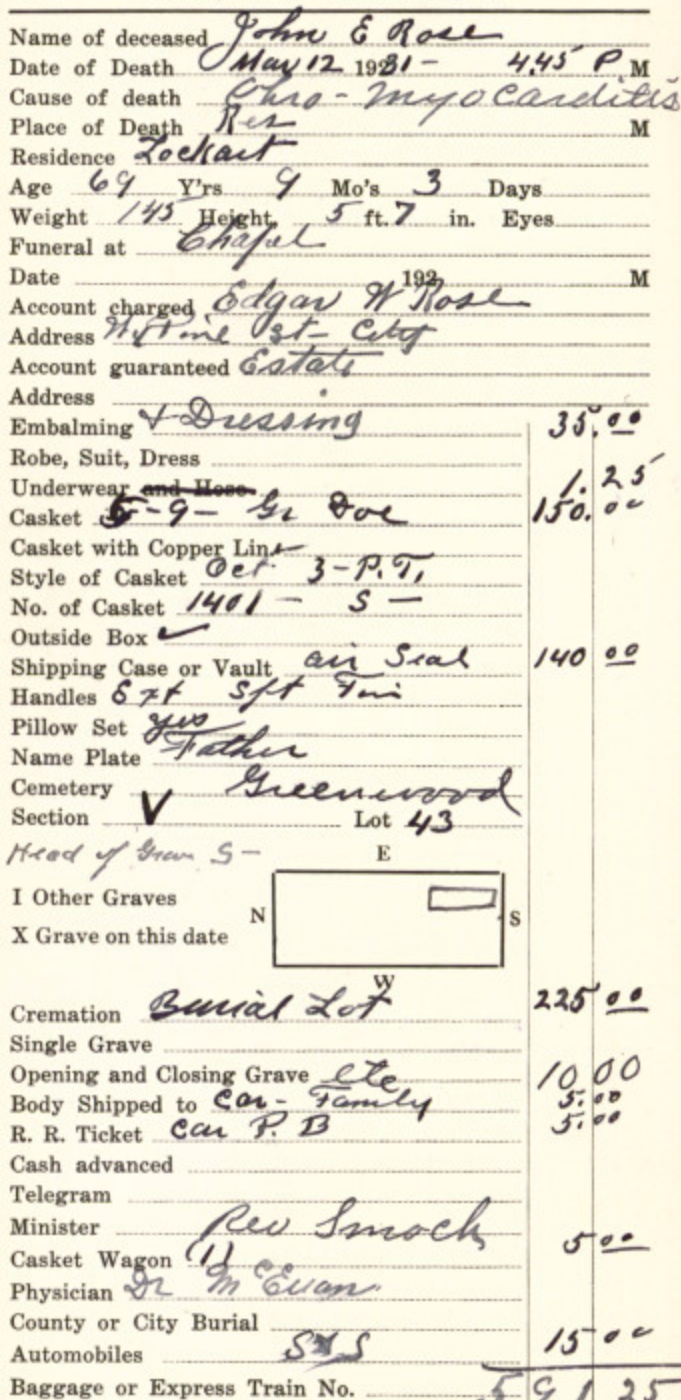 Name of deceased John E Rose
Date of Death Mar 12 1931 - 4.45 P M
Cause of death Chro - Myocarditis
Place of Death Res M
Residence Lockart
Age 69 Y'rs 9 Mo's 3 Days
Weight 145 Height 5 ft. 7 in. Eyes
Funeral at Chapel
Date 192 M
Account charged Edgar W Rose
Address W Pine St - City
Account guaranteed Estate
Address
Embalming & Dressing 35.00
Robe, Suit, Dress
Underwear and Hose 1.25
Casket 5-9- Gr Doe 150.00
Casket with Copper Lin
Style of Casket Oct 3-P.T.
No. of Casket 1401 - S -
Outside Box ✓
Shipping Case or Vault air Seal 140 00
Handles Ext
Pillow Set yes
Name Plate Father
Cemetery Greenwood
Section V Lot 43
Head of Grave S -
E
I Other Graves
N S
X Grave on this date
W
Cremation Burial Lot 225 00
Single Grave
Opening and Closing Grave etc 10 00
Body Shipped to Car - Family 5.00
R. R. Ticket Car P. B 5.00
Cash advanced
Telegram
Minister Rev Smock 5 00
Casket Wagon (1)
Physician Dr McEwan
County or City Burial
Automobiles 15 00
Baggage or Express Train No. 591.25